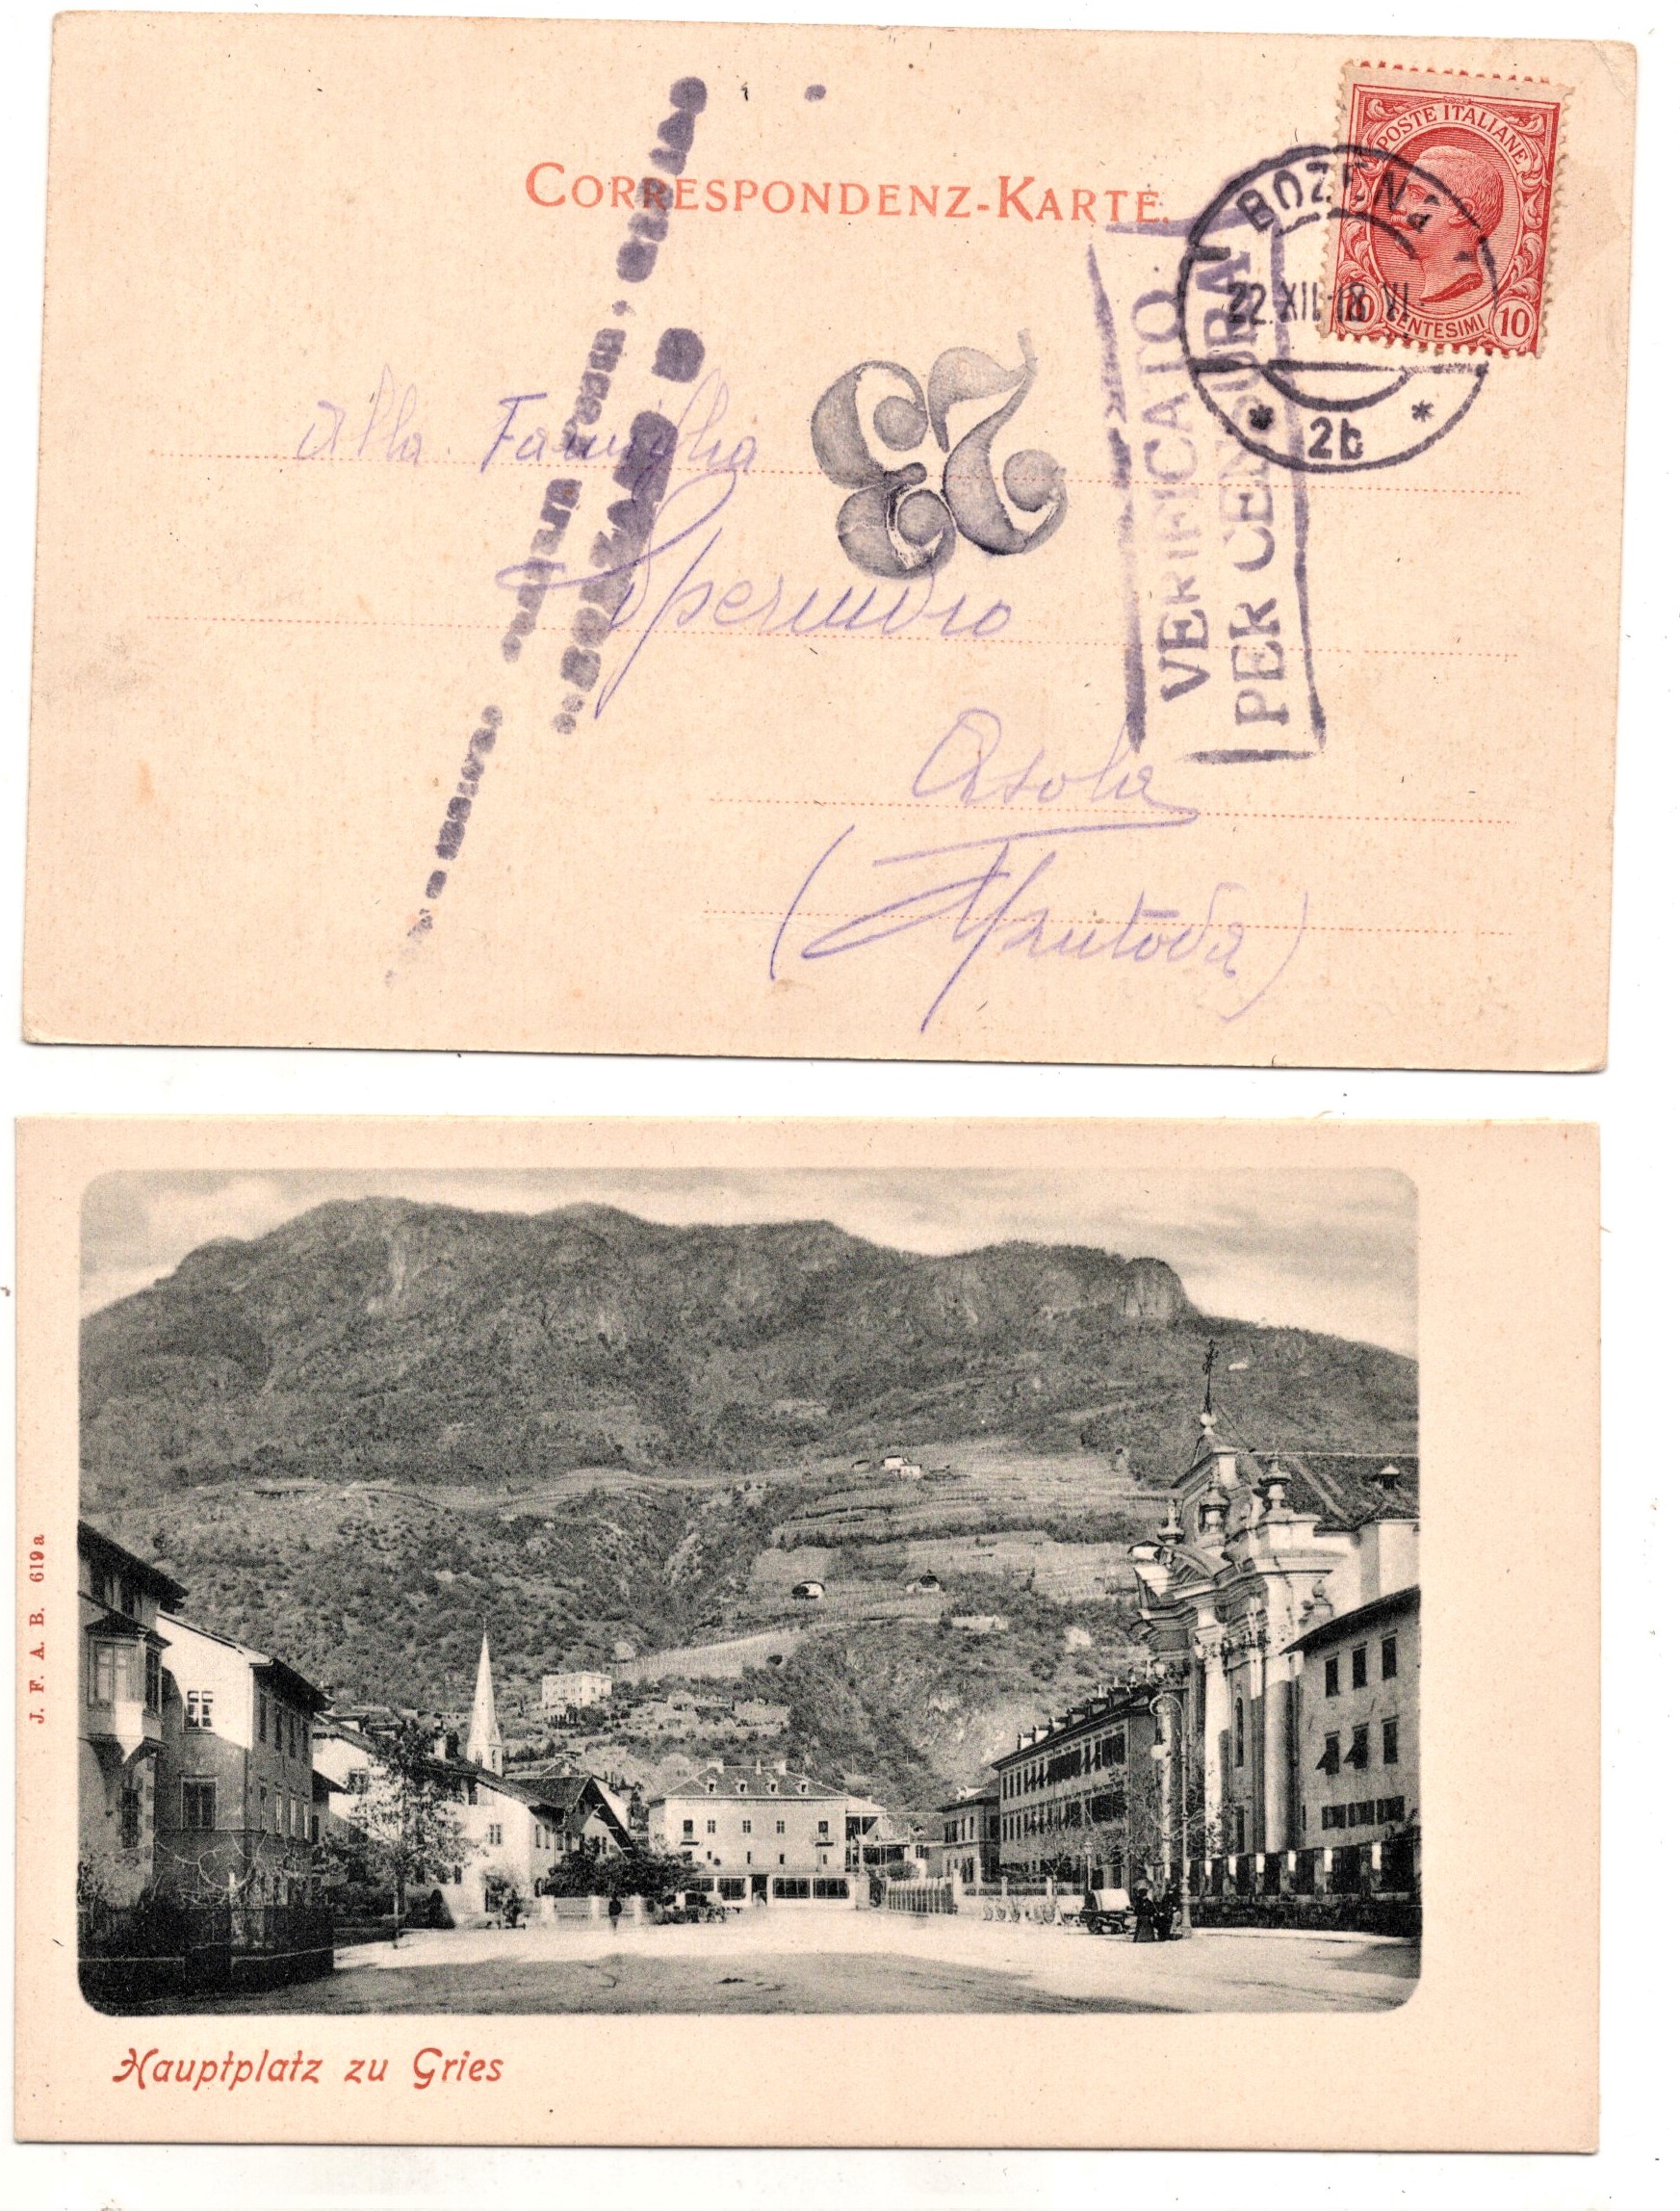 CORRESPONDENZ-KARTE.
POSTE ITALIANE
10 CENTESIMI 10
BOZEN
22.XII.18 VI
* 2b *
VERIFICATO
PER CENSURA
23
Alla Famiglia
Sperindio
Asola
(Mantova)
J. F. A. B. 619a
Hauptplatz zu Gries